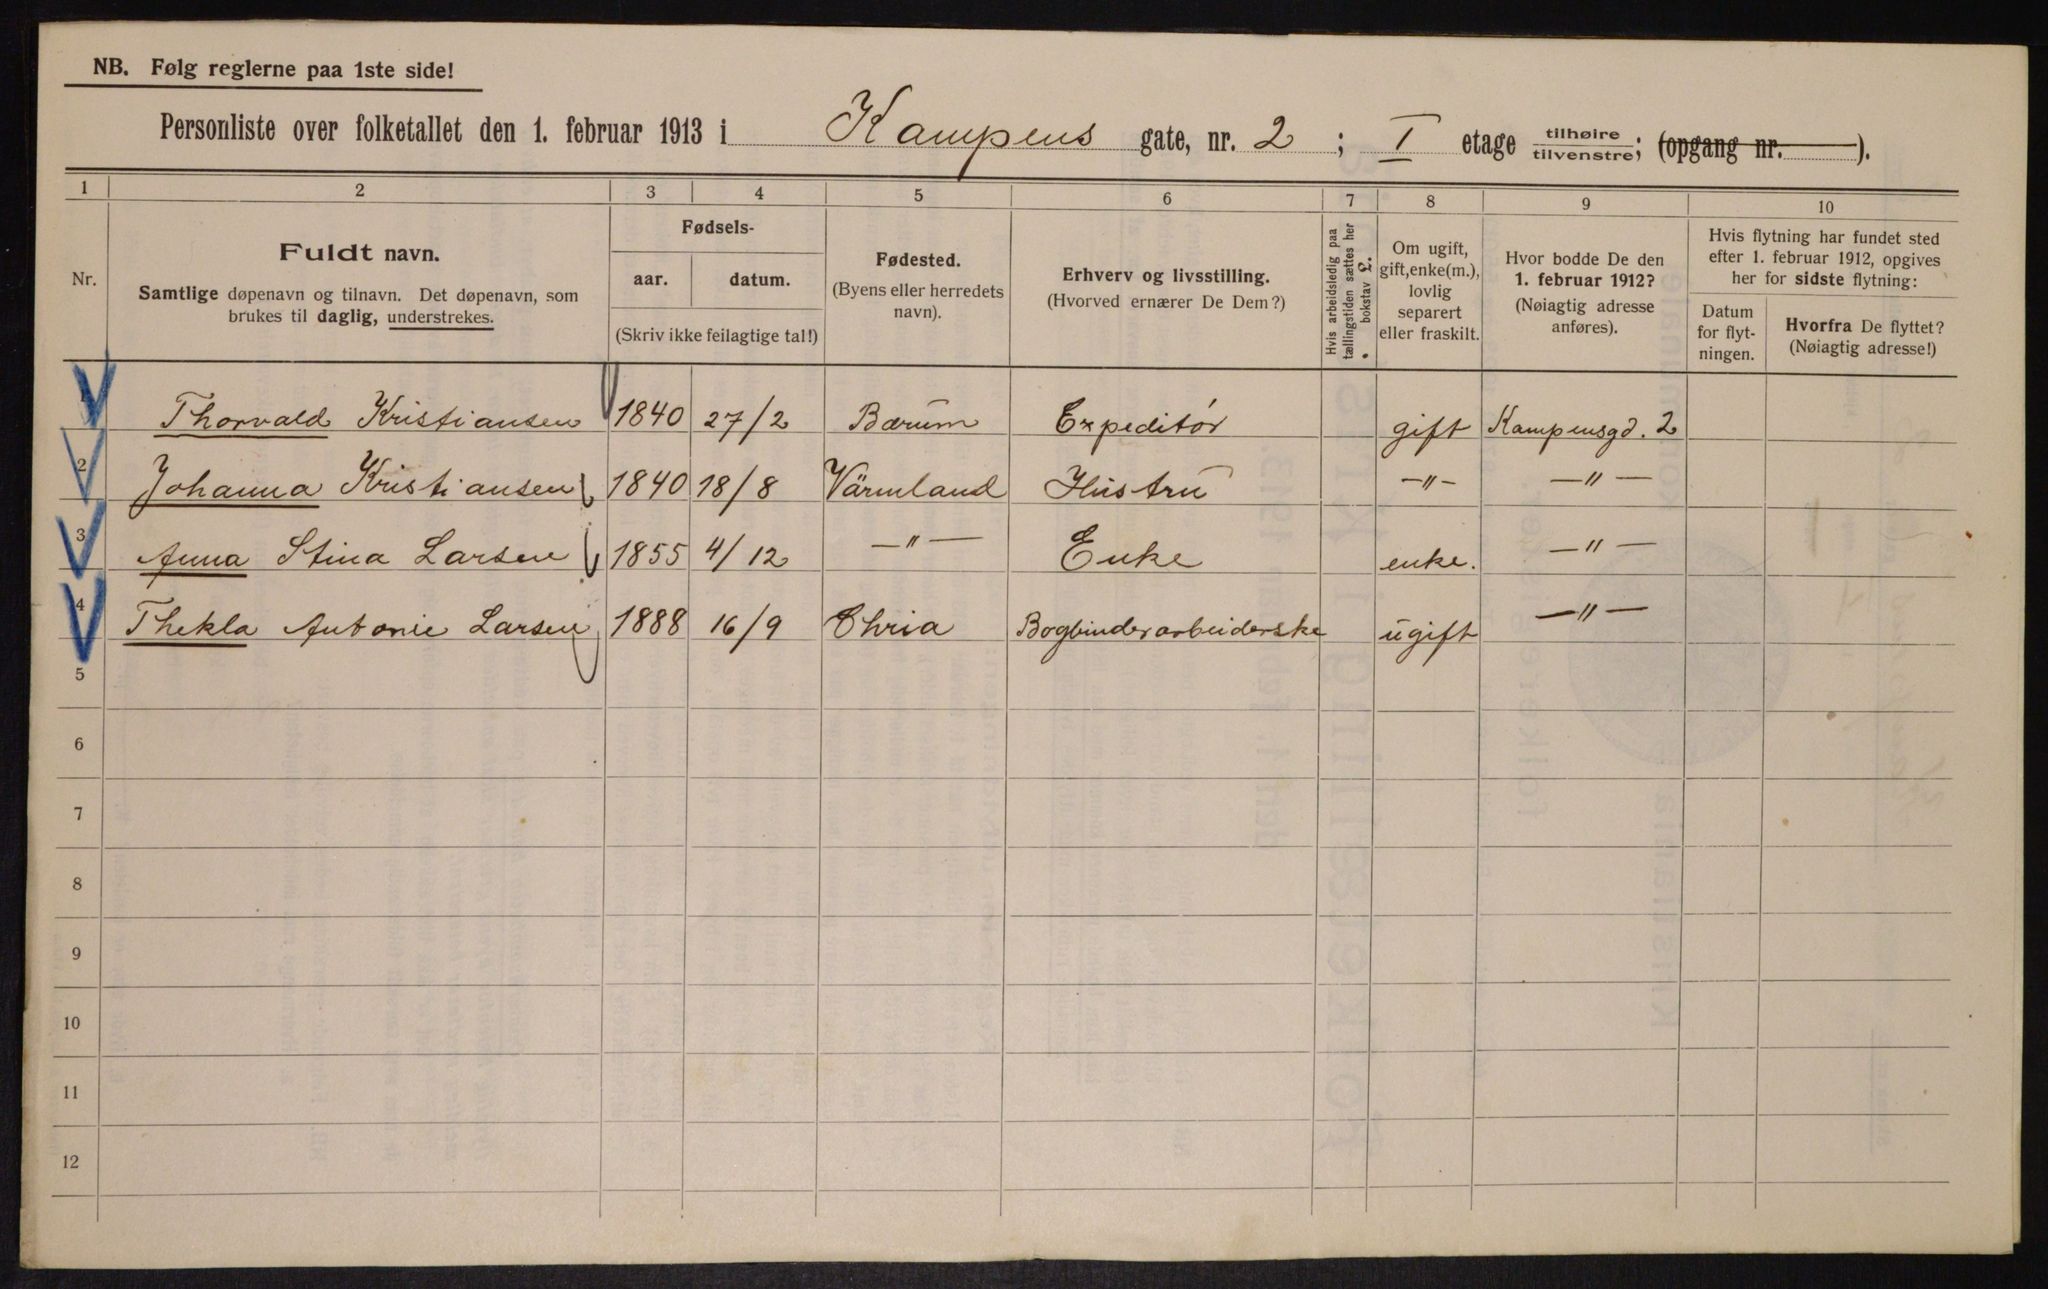 NB. Følg reglerne paa 1ste side!
Personliste over folketallet den 1. februar 1913 i Kampens gate, nr. 2 ; I etage tilhøire/tilvenstre; (opgang nr. ).
1 2 3 4 5 6 7 8 9 10
Nr.
Fuldt navn.
Samtlige døpenavn og tilnavn. Det døpenavn, som
brukes til daglig, understrekes.
Fødsels-
aar. datum.
(Skriv ikke feilagtige tal!)
Fødested.
(Byens eller herredets
navn).
Erhverv og livsstilling.
(Hvorved ernærer De Dem?)
Hvis arbeidsledig paa
tællingstiden sættes her
bokstav £.
Om ugift,
gift, enke(m.),
lovlig
separert
eller fraskilt.
Hvor bodde De den
1. februar 1912?
(Nøiagtig adresse
anføres).
Hvis flytning har fundet sted
efter 1. februar 1912, opgives
her for sidste flytning:
Datum
for flyt-
ningen.
Hvorfra De flyttet?
(Nøiagtig adresse!)
1 Thorvald Kristiansen 1840 27/2 Bærum Expeditør gift Kampensgd. 2
2 Johanna Kristiansen 1840 18/8 Värmland Hustru —"— —"—
3 Anna Stina Larsen 1855 4/12 —"— Enke enke. —"—
4 Thekla Antonie Larsen 1888 16/9 Chria Bogbinderarbeiderske ugift —"—
5
6
7
8
9
10
11
12